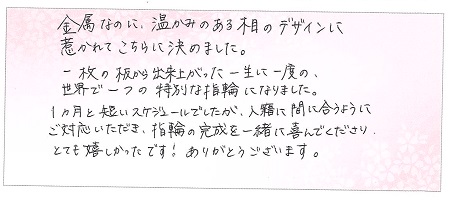 金属なのに、温かみのある相のデザインに
惹かれてこちらに決めました。
一枚の板から出来上がった一生に一度の、
世界で一つの特別な指輪になりました。
1ヵ月と短いスケジュールでしたが、入籍に間に合うように
ご対応いただき、指輪の完成を一緒に喜んでくださり、
とても嬉しかったです！ありがとうございます。